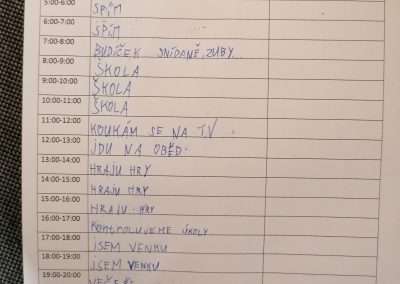 5:00-6:00 SPÍM
6:00-7:00 SPÍM
7:00-8:00 BUDÍČEK SNÍDANĚ, ZUBY
8:00-9:00 ŠKOLA
9:00-10:00 ŠKOLA
10:00-11:00 ŠKOLA
11:00-12:00 KOUKÁM SE NA TV
12:00-13:00 JDU NA OBĚD.
13:00-14:00 HRAJU HRY
14:00-15:00 HRAJU HRY
15:00-16:00 HRAJU HRY
16:00-17:00 KONTROLUJEME ÚKOLY
17:00-18:00 JSEM VENKU
18:00-19:00 JSEM VENKU
19:00-20:00